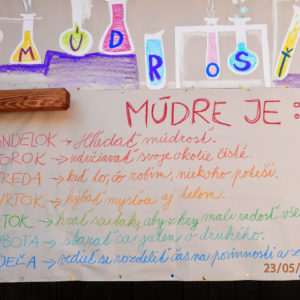 MÚDROSŤ
MÚDRE JE:
NDELOK → Hľadať múdrosť.
OROK → udržiavať svoje okolie čisté.
REDA → keď to, čo robím, niekoho poteší.
VRTOK → hýbať mysľou aj telom.
ATOK → hrať sa tak, aby z hry mali radosť vše
OBOTA → starať sa jeden o druhého.
DEĽA → vedieť si rozdeliť čas na povinnosti a z
23/05/